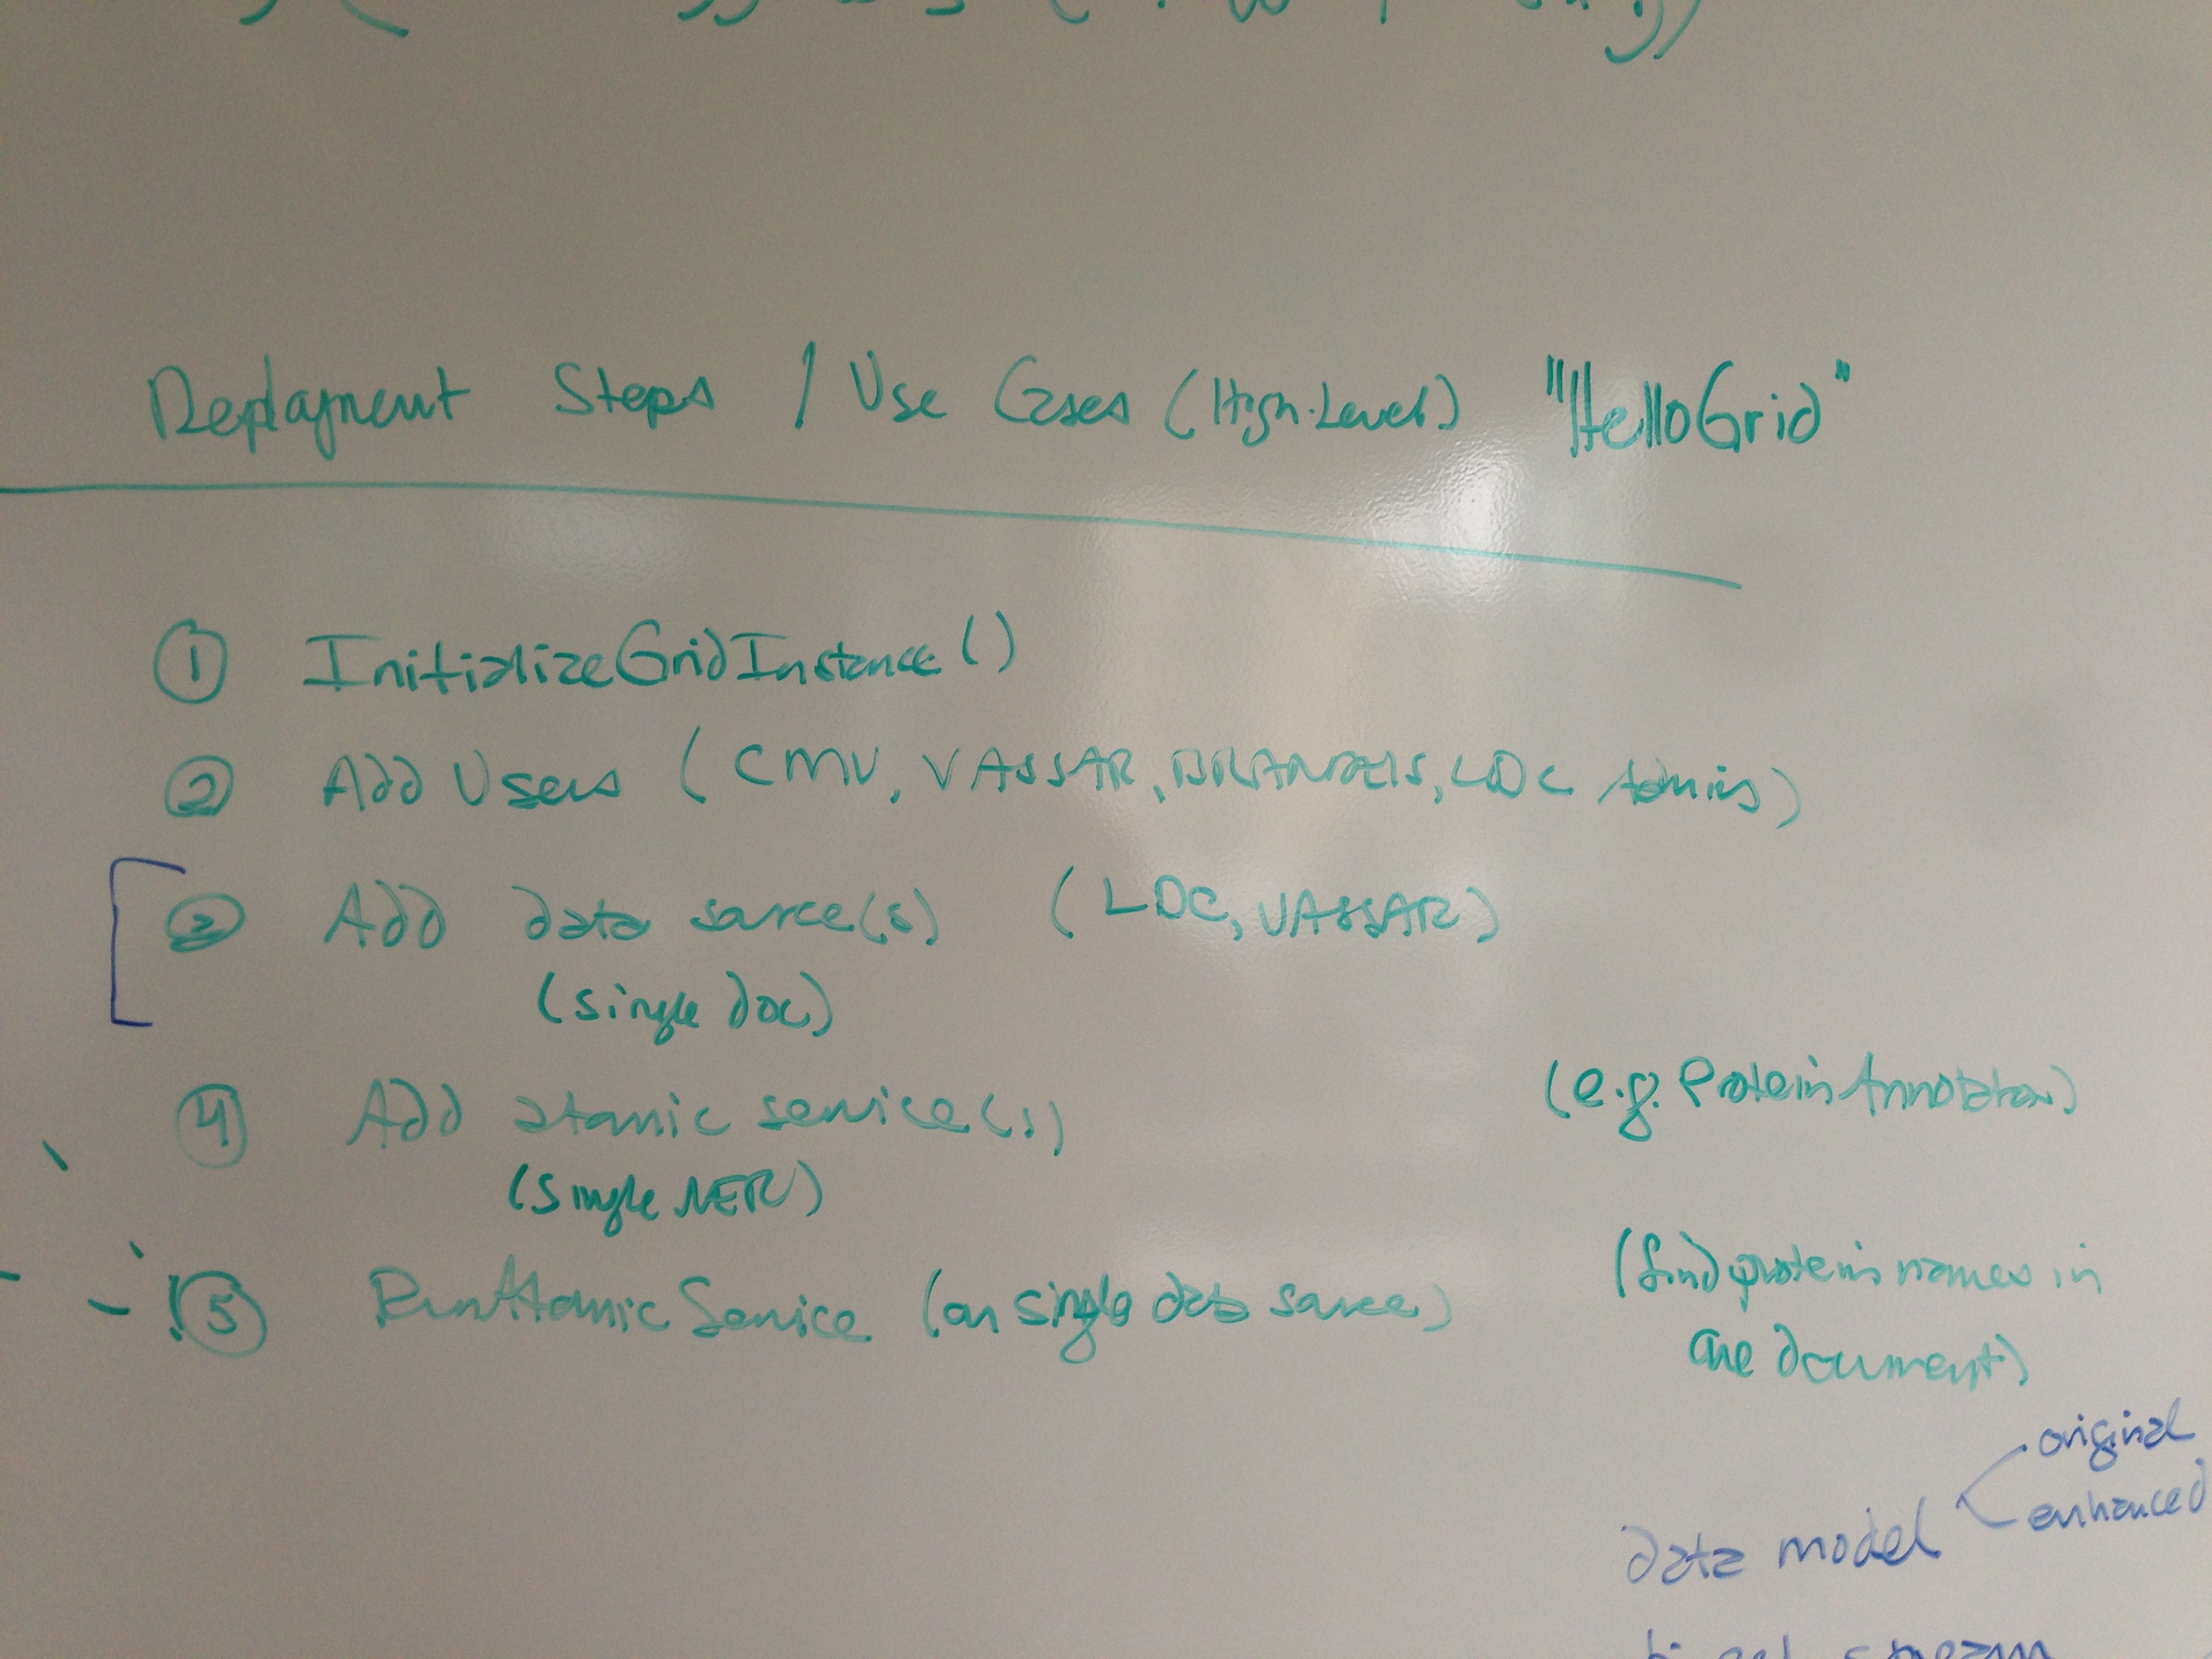 Deployment Steps / Use Cases (High-Level) "HelloGrid"
① InitializeGridInstance()
② Add Users (CMU, VASSAR, BRANDEIS, LDC Admins)
③ Add data source(s) (LDC, VASSAR)
(single doc)
④ Add atomic service(s) (e.g. Protein Annotator)
(single NER)
⑤ RunAtomicService (on single data source) (find protein names in
one document)
original
enhanced
data model
stream